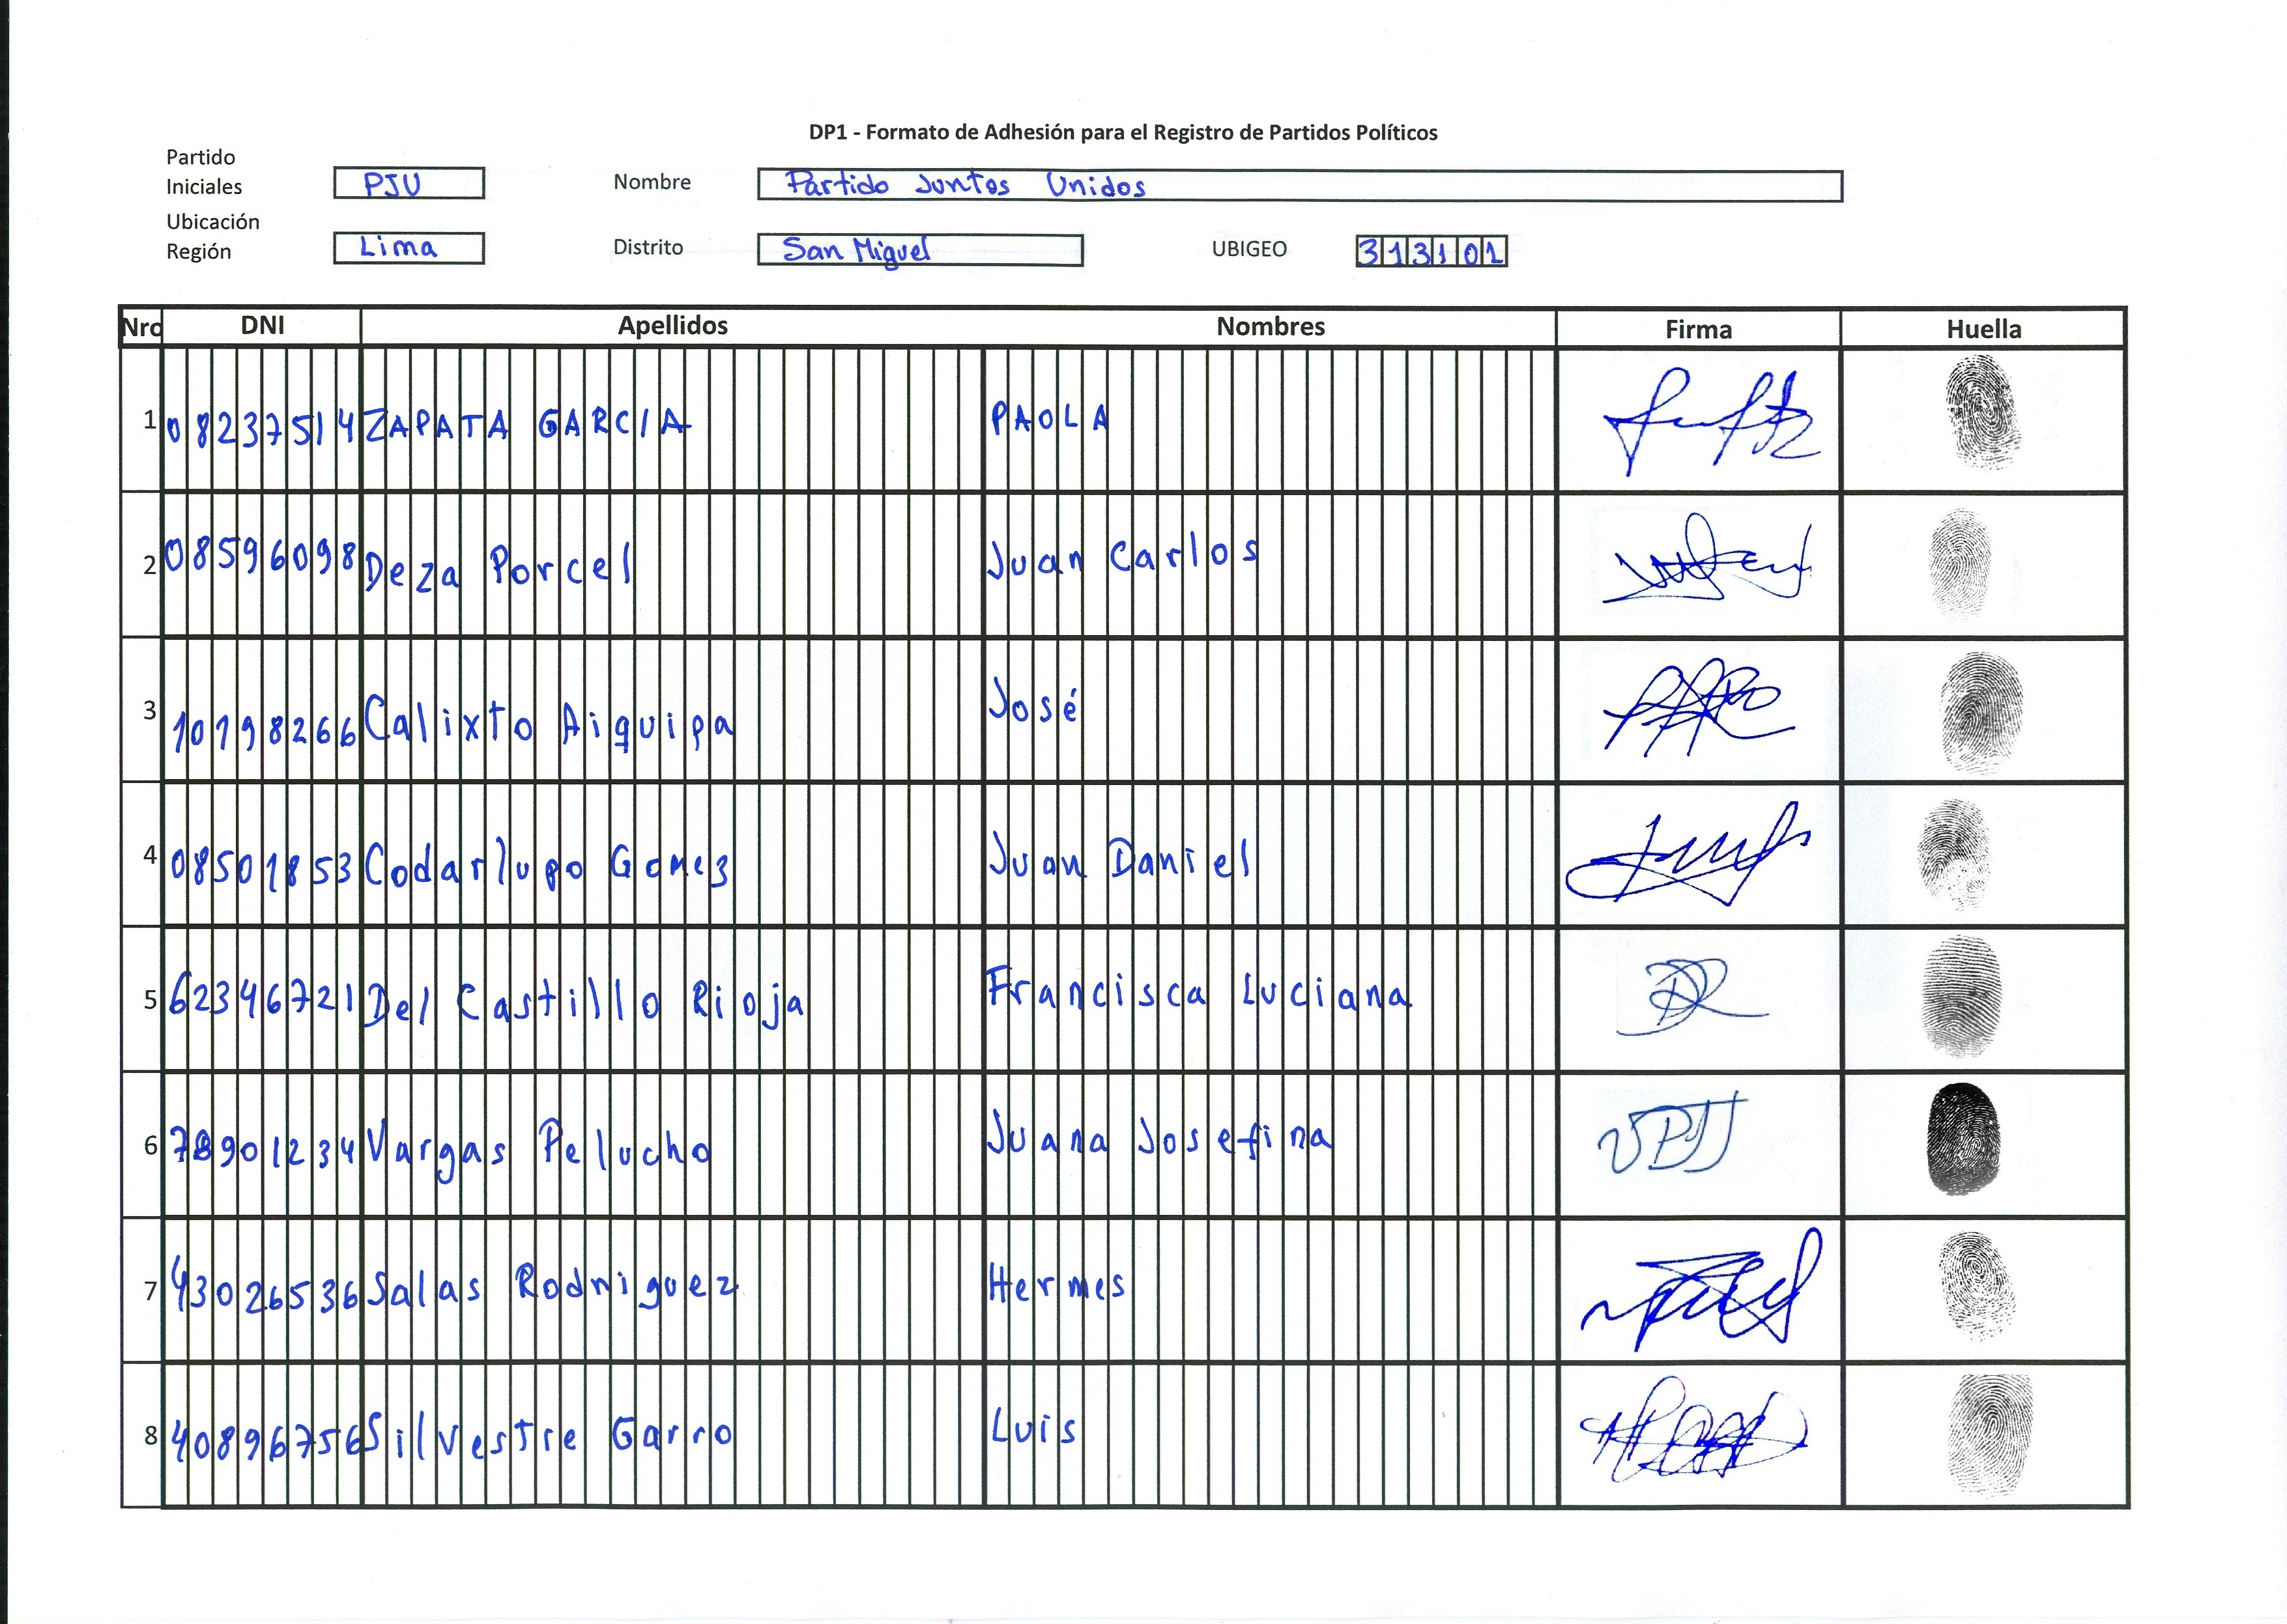 DP1 - Formato de Adhesión para el Registro de Partidos Políticos
Partido
Iniciales PJU Nombre Partido Juntos Unidos
Ubicación
Región Lima Distrito San Miguel UBIGEO 313101
Nro DNI Apellidos Nombres Firma Huella
1 08237514 ZAPATA GARCIA PAOLA
2 08596098 Deza Porcel Juan Carlos
3 10198266 Calixto Aiquipa José
4 08501853 Codarlupo Gomez Juan Daniel
5 62346721 Del Castillo Rioja Francisca Luciana
6 78901234 Vargas Pelucho Juana Josefina
7 43026536 Salas Rodriguez Hermes
8 40896756 Silvestre Garro Luis